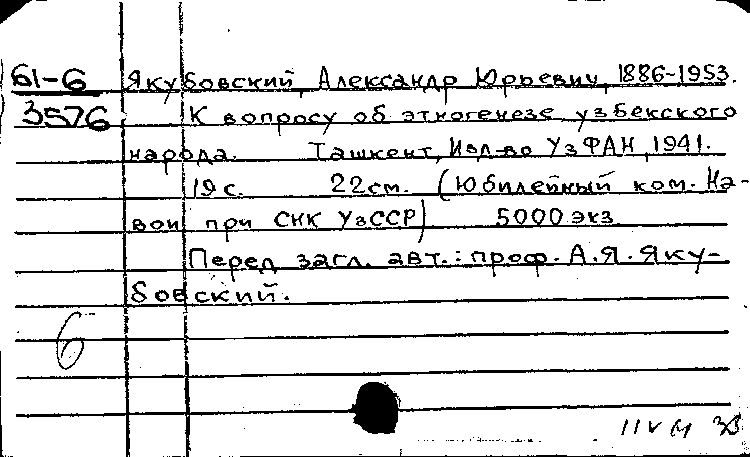 61-6 Якубовский, Александр Юрьевич, 1886-1953.
3576 К вопросу об этногенезе узбекского
народа. Ташкент, Изд-во УзФАН, 1941.
19 с. 22 см. (Юбилейный ком. На-
вои при СНК УзССР) 5000 экз
Перед загл. авт.: проф. А.Я. Яку-
бовский.
6